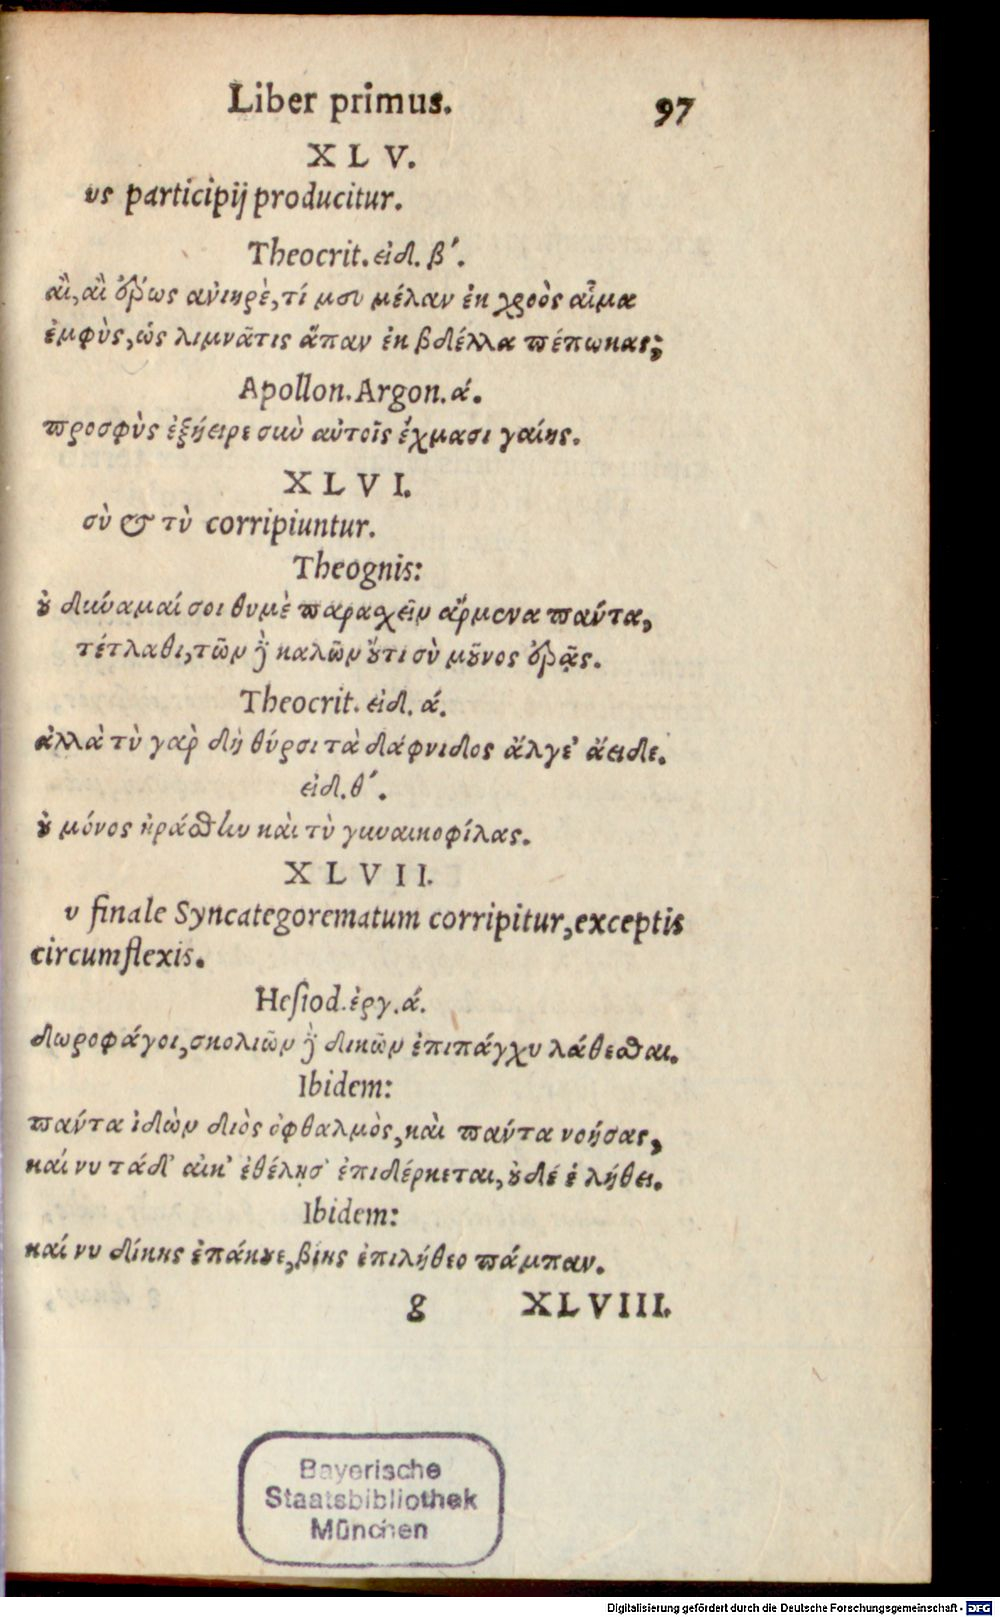 Liber primus. 97
XLV.
υς participij producitur.
Theocrit. εἰδ. β´.
αἲ, αἲ ἔρως ἀνιηρὲ, τί μευ μέλαν ἐκ χροὸς αἷμα
ἐμφὺς, ὡς λιμνᾶτις ἅπαν ἐκ βδέλλα πέπωκας;
Apollon. Argon. ά.
προσφὺς ἐξήειρε σὺν αὐτοῖς ἔχμασι γαίης.
XLVI.
σὺ & τὺ corripiuntur.
Theognis:
οὐ δύναμαί σοι θυμὲ παρασχεῖν ἄρμενα πάντα,
τέτλαθι, τῶν δὲ καλῶν οὔτι σὺ μοῦνος ἐρᾷς.
Theocrit. εἰδ. ά.
ἀλλὰ τὺ γὰρ δὴ θύρσι τὰ δάφνιδος ἄλγε' ἄειδε.
εἰδ. θ´.
οὐ μόνος ἠράσθην καὶ τὺ γυναικοφίλας.
XLVII.
υ finale Syncategorematum corripitur, exceptis
circumflexis.
Hesiod. ἐργ. ά.
δωροφάγοι, σκολιῶν δὲ δικῶν ἐπιπάγχυ λάθεσθαι.
Ibidem:
πάντα ἰδὼν διὸς ὀφθαλμὸς, καὶ πάντα νοήσας,
καί νυ τάδ' αἰκ' ἐθέλησ' ἐπιδέρκεται, οὐδέ ἑ λήθει.
Ibidem:
καί νυ δίκης ἐπάκουε, βίης ἐπιλήθεο πάμπαν.
g XLVIII.
Bayerische
Staatsbibliothek
München
Digitalisierung gefördert durch die Deutsche Forschungsgemeinschaft - DFG